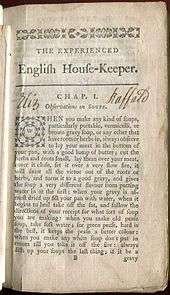 THE EXPERIENCED
English House-Keeper.
CHAP. I.
Eliz Raffald
Observations on SOUPS.
WHEN you make any kind of soups,
particularly portable, vermicelli, or
brown gravy soup, or any other that
have roots or herbs in, always observe
to lay your meat in the bottom of
your pan, with a good lump of butter; cut the
herbs and roots small, lay them over your meat,
cover it close, set it over a very slow fire, it
will draw all the virtue out of the roots or
herbs, and turns it to a good gravy, and gives
the soup a very different flavour from putting
water in at the first: when your gravy is al-
most dried up fill your pan with water, when it
begins to boil take off the fat, and follow the
directions of your receipt for what sort of soup
you are making: when you make old peas
soup, take soft water; for green peas, hard is
the best, it keeps the peas a better colour:
when you make any white soup don't put in
cream till you take it off the fire: always
dish up your soups the last thing; if it be a
B gravy